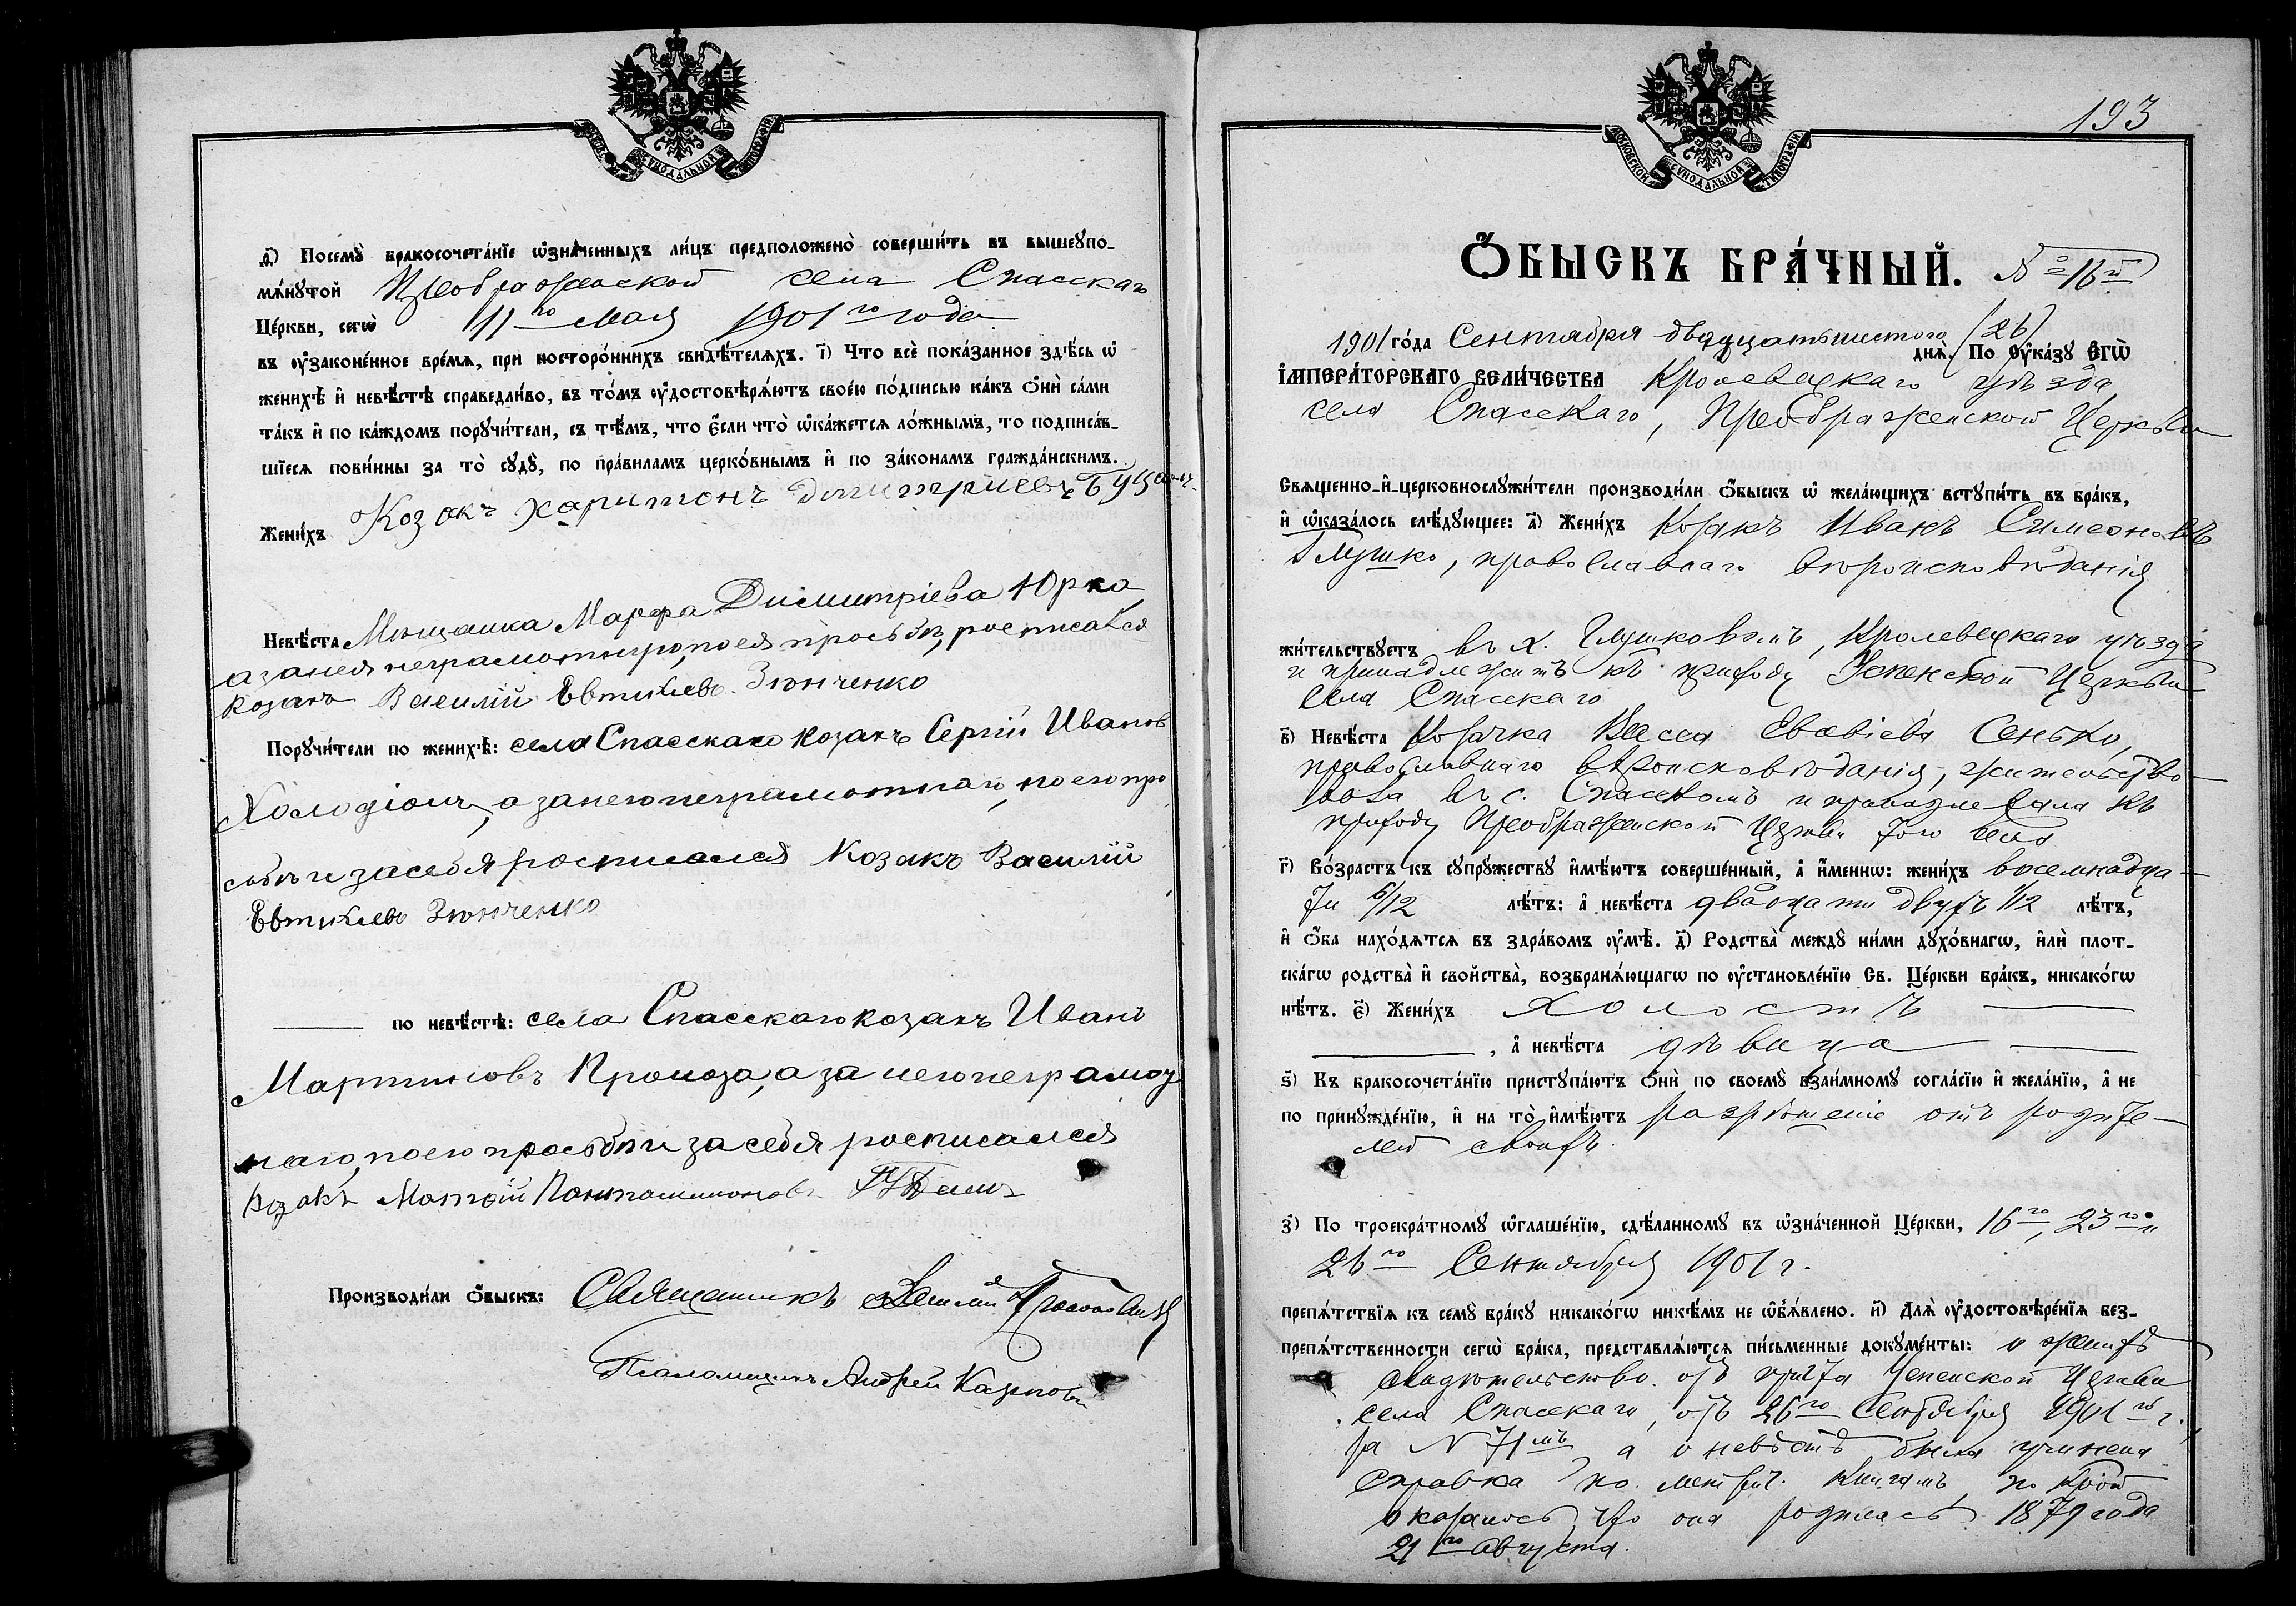 МОСКОВ. СѴНОДАЛЬНОЙ ТИПОГРАФІИ
ѳ҃) Посемꙋ̀ бракосочета́нїе ѡ҆зна́ченныхъ ли́цъ предположено̀ соверши́ть въ вышеꙋпо-
мѧ́нꙋтой Преображенской села Спасскаго
Це́ркви, сегѡ̀ 11го Мая 1901го года
въ ᲂу҆законе́нное вре́мѧ, при посторо́ннихъ свидѣ́телѧхъ. і҃) Что всѐ пока́занное здѣ́сь ѡ҆
женихѣ̀ и҆ невѣ́стѣ справедли́во, въ то́мъ ᲂу҆достовѣрѧ́ютъ свое́ю по́дписью ка́къ ѻ҆нѝ са́ми
та́къ и҆ по ка́ждомъ порꙋчи́тели, съ тѣ́мъ, что є҆́сли что̀ ѡ҆ка́жетсѧ ло́жнымъ, то подписа́в-
шїесѧ пови́нны за то̀ сꙋдꙋ̀, по пра́виламъ церко́внымъ и҆ по зако́намъ гражда́нскимъ.
Жени́хъ Козакъ Харитонъ Димитриевъ
Невѣ́ста Мѣщанка Марфа Димитріева Юрка
а занея неграмотную, по ея просьбѣ, росписался
козакъ Василій Евтихіевъ Зинченко
Порꙋчи́тели по женихѣ̀: села Спасскаго козакъ Сергій Ивановъ
а за него неграмотнаго, по его про
сьбѣ и за себя росписался Козакъ Василій
Евтихіевъ Зинченко
по невѣ́стѣ: села Спасскаго козакъ Иванъ
Мартиновъ а за него неграмот
наго, по его просьбѣ и за себя росписался
Козакъ Матѳій Пантелимоновъ
Производи́ли ѻ҆́быскъ: Священникъ
Псаломщикъ Андрей
193
МОСКОВСКОЙ СѴНОДАЛЬНОЙ ТИПОГРАФІИ
Ѻ҆́БЫСКЪ БРА́ЧНЫЙ. № 16й
1901 го́да Сентября двадцатьшестого (26)
днѧ̀. По Ꙋ҆ка́зꙋ Є҆ГѠ̀
І҆МПЕРА́ТОРСКАГО ВЕЛИ́ЧЕСТВА Кролевецкаго уѣзда
села Спасскаго, Преображенской Церкви
Свѧще́нно-и҆-церковнослꙋжи́тели производи́ли ѻ҆́быскъ ѡ҆ жела́ющихъ встꙋпи́ть въ бра́къ,
и҆ ѡ҆каза́лось слѣ́дꙋющее: а҃) Жени́хъ Козакъ Иванъ Симеоновъ
Глушко, православнаго вѣроисповѣданія
жи́тельствꙋетъ въ х. Глушковомъ, Кролевецкаго уѣзда
и принадлежитъ къ приходу Успенской Церкви
села Спасскаго
в҃) Невѣ́ста Козачка Васса Евсевіева Сенько,
православнаго вѣроисповѣданія, жительство-
вала въ с. Спасскомъ и принадлежала къ
приходу Преображенской Церкви того села
г҃) Во́зрастъ къ сꙋпрꙋ́жествꙋ и҆мѣ́ютъ соверше́нный, а҆ и҆́меннѡ: жени́хъ восемнадца-
ти 6/12 лѣ́тъ: а҆ невѣ́ста двадцати двухъ 1/12 лѣ́тъ,
и҆ ѻ҆́ба нахо́дѧтсѧ въ здра́вомъ ᲂу҆мѣ̀. д҃) Родства̀ междꙋ̀ ни́ми дꙋхо́внагѡ, и҆лѝ плот-
ска́гѡ родства̀ и҆ сво́йства̀, возбранѧ́ющагѡ по ᲂу҆становле́нїю Св. Це́ркви бра́къ, никако́гѡ
нѣ́тъ. є҃) Жени́хъ холостъ
, а҆ невѣ́ста дѣвица
ѕ҃) Къ бракосочета́нїю пристꙋпа́ютъ ѻ҆нѝ по своемꙋ̀ взаи́мномꙋ согла́сїю и҆ жела́нїю, а҆ не
по принꙋжде́нїю, и҆ на то̀ и҆мѣ́ютъ разрѣшеніе отъ родите-
лей своихъ
з҃) По троекра́тномꙋ ѡ҆глаше́нїю, сдѣ́ланномꙋ въ ѡ҆зна́ченной Це́ркви, 16го, 23го и
26го Сентября 1901 г.
препѧ́тствїѧ къ семꙋ̀ бра́кꙋ никако́гѡ никѣ́мъ не ѡ҆б̾ѧ́влено. и҃) Длѧ̀ ᲂу҆достовѣре́нїѧ без-
препѧ́тственности сегѡ̀ бра́ка, представлѧ́ютсѧ пи́сьменные докꙋме́нты: о женихѣ
свидѣтельство отъ причта Успенской Церкви
села Спасскаго, отъ 26го Сентября 1901го г.
за № 71мъ, а о невѣстѣ была учинена
справка по метрич. книгамъ, по коей
оказалось, что она родилась 1879 года
21го августа.